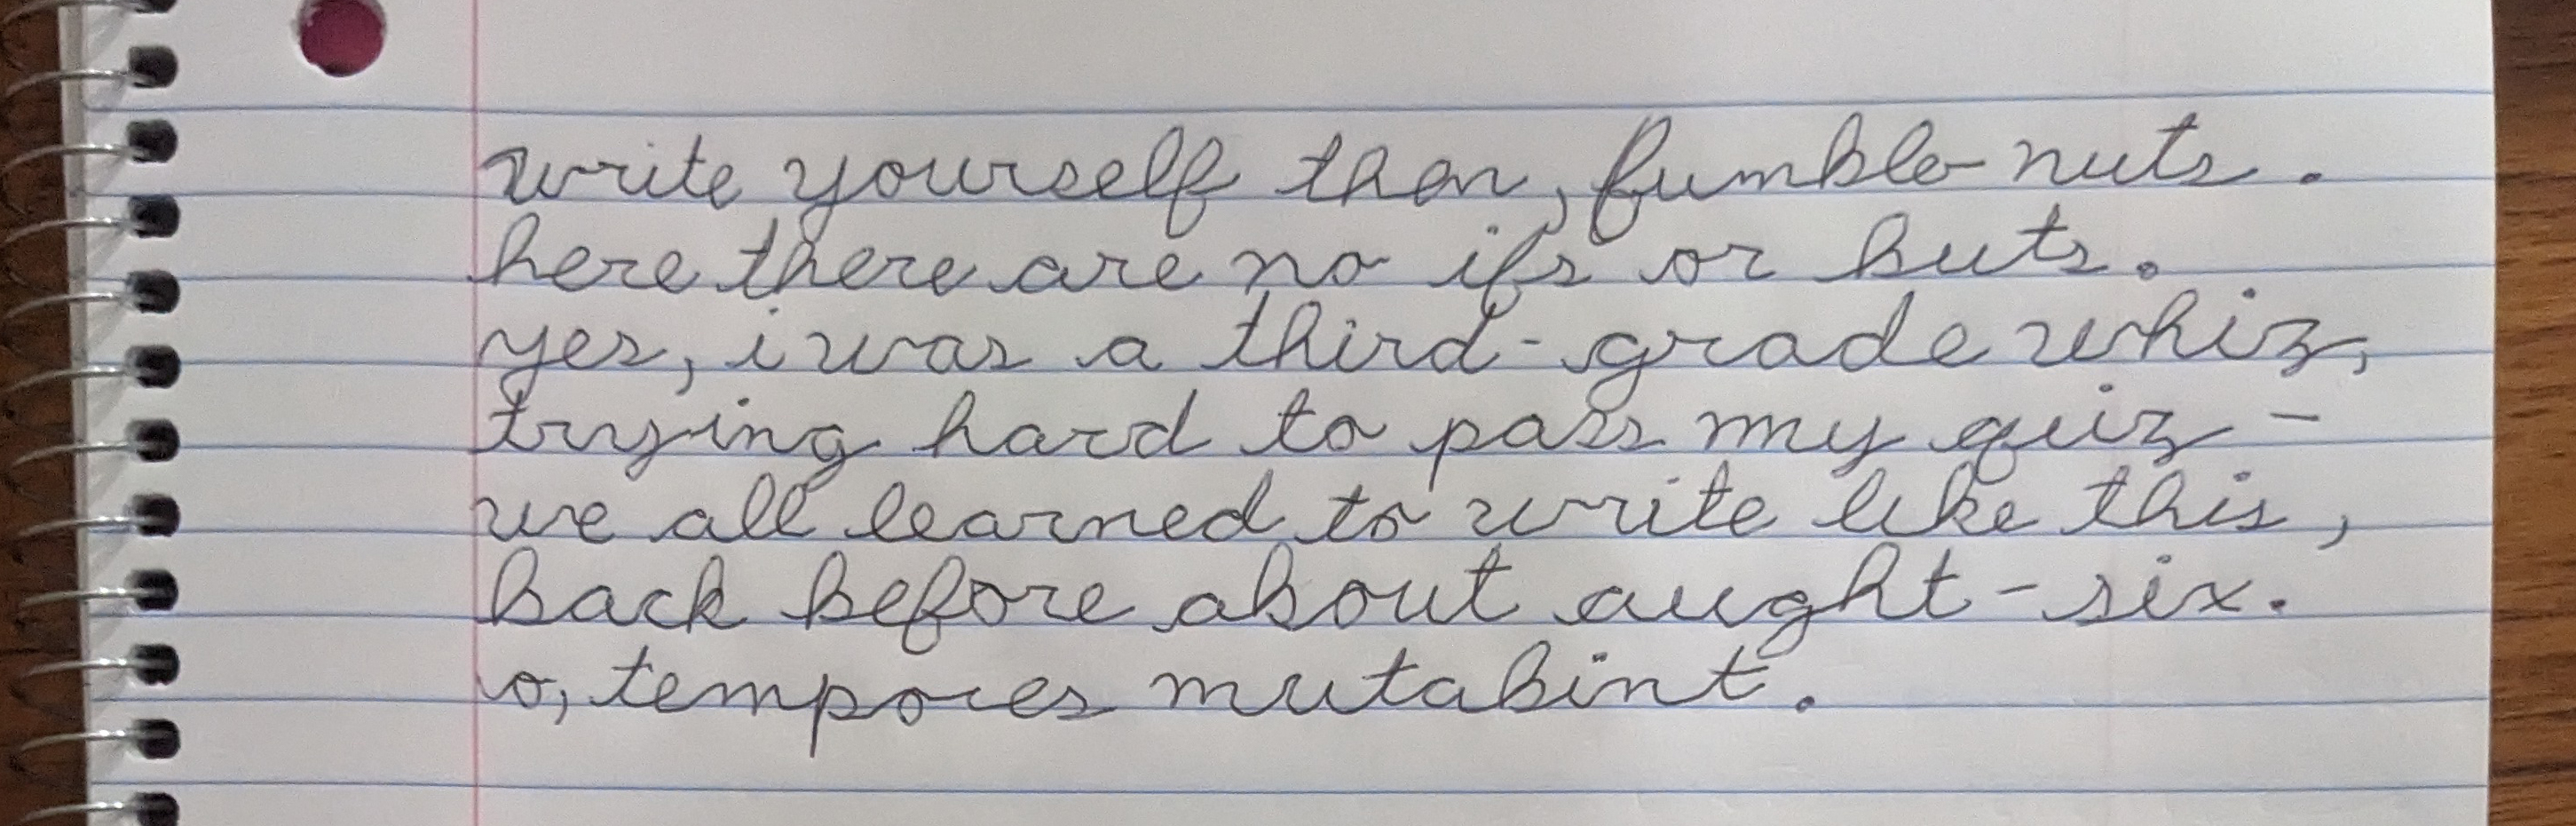 write yourself then, fumble-nuts.
here there are no ifs or buts.
yes, i was a third-grade whiz,
trying hard to pass my quiz -
we all learned to write like this,
back before about aught-six.
o, tempores mutabint.